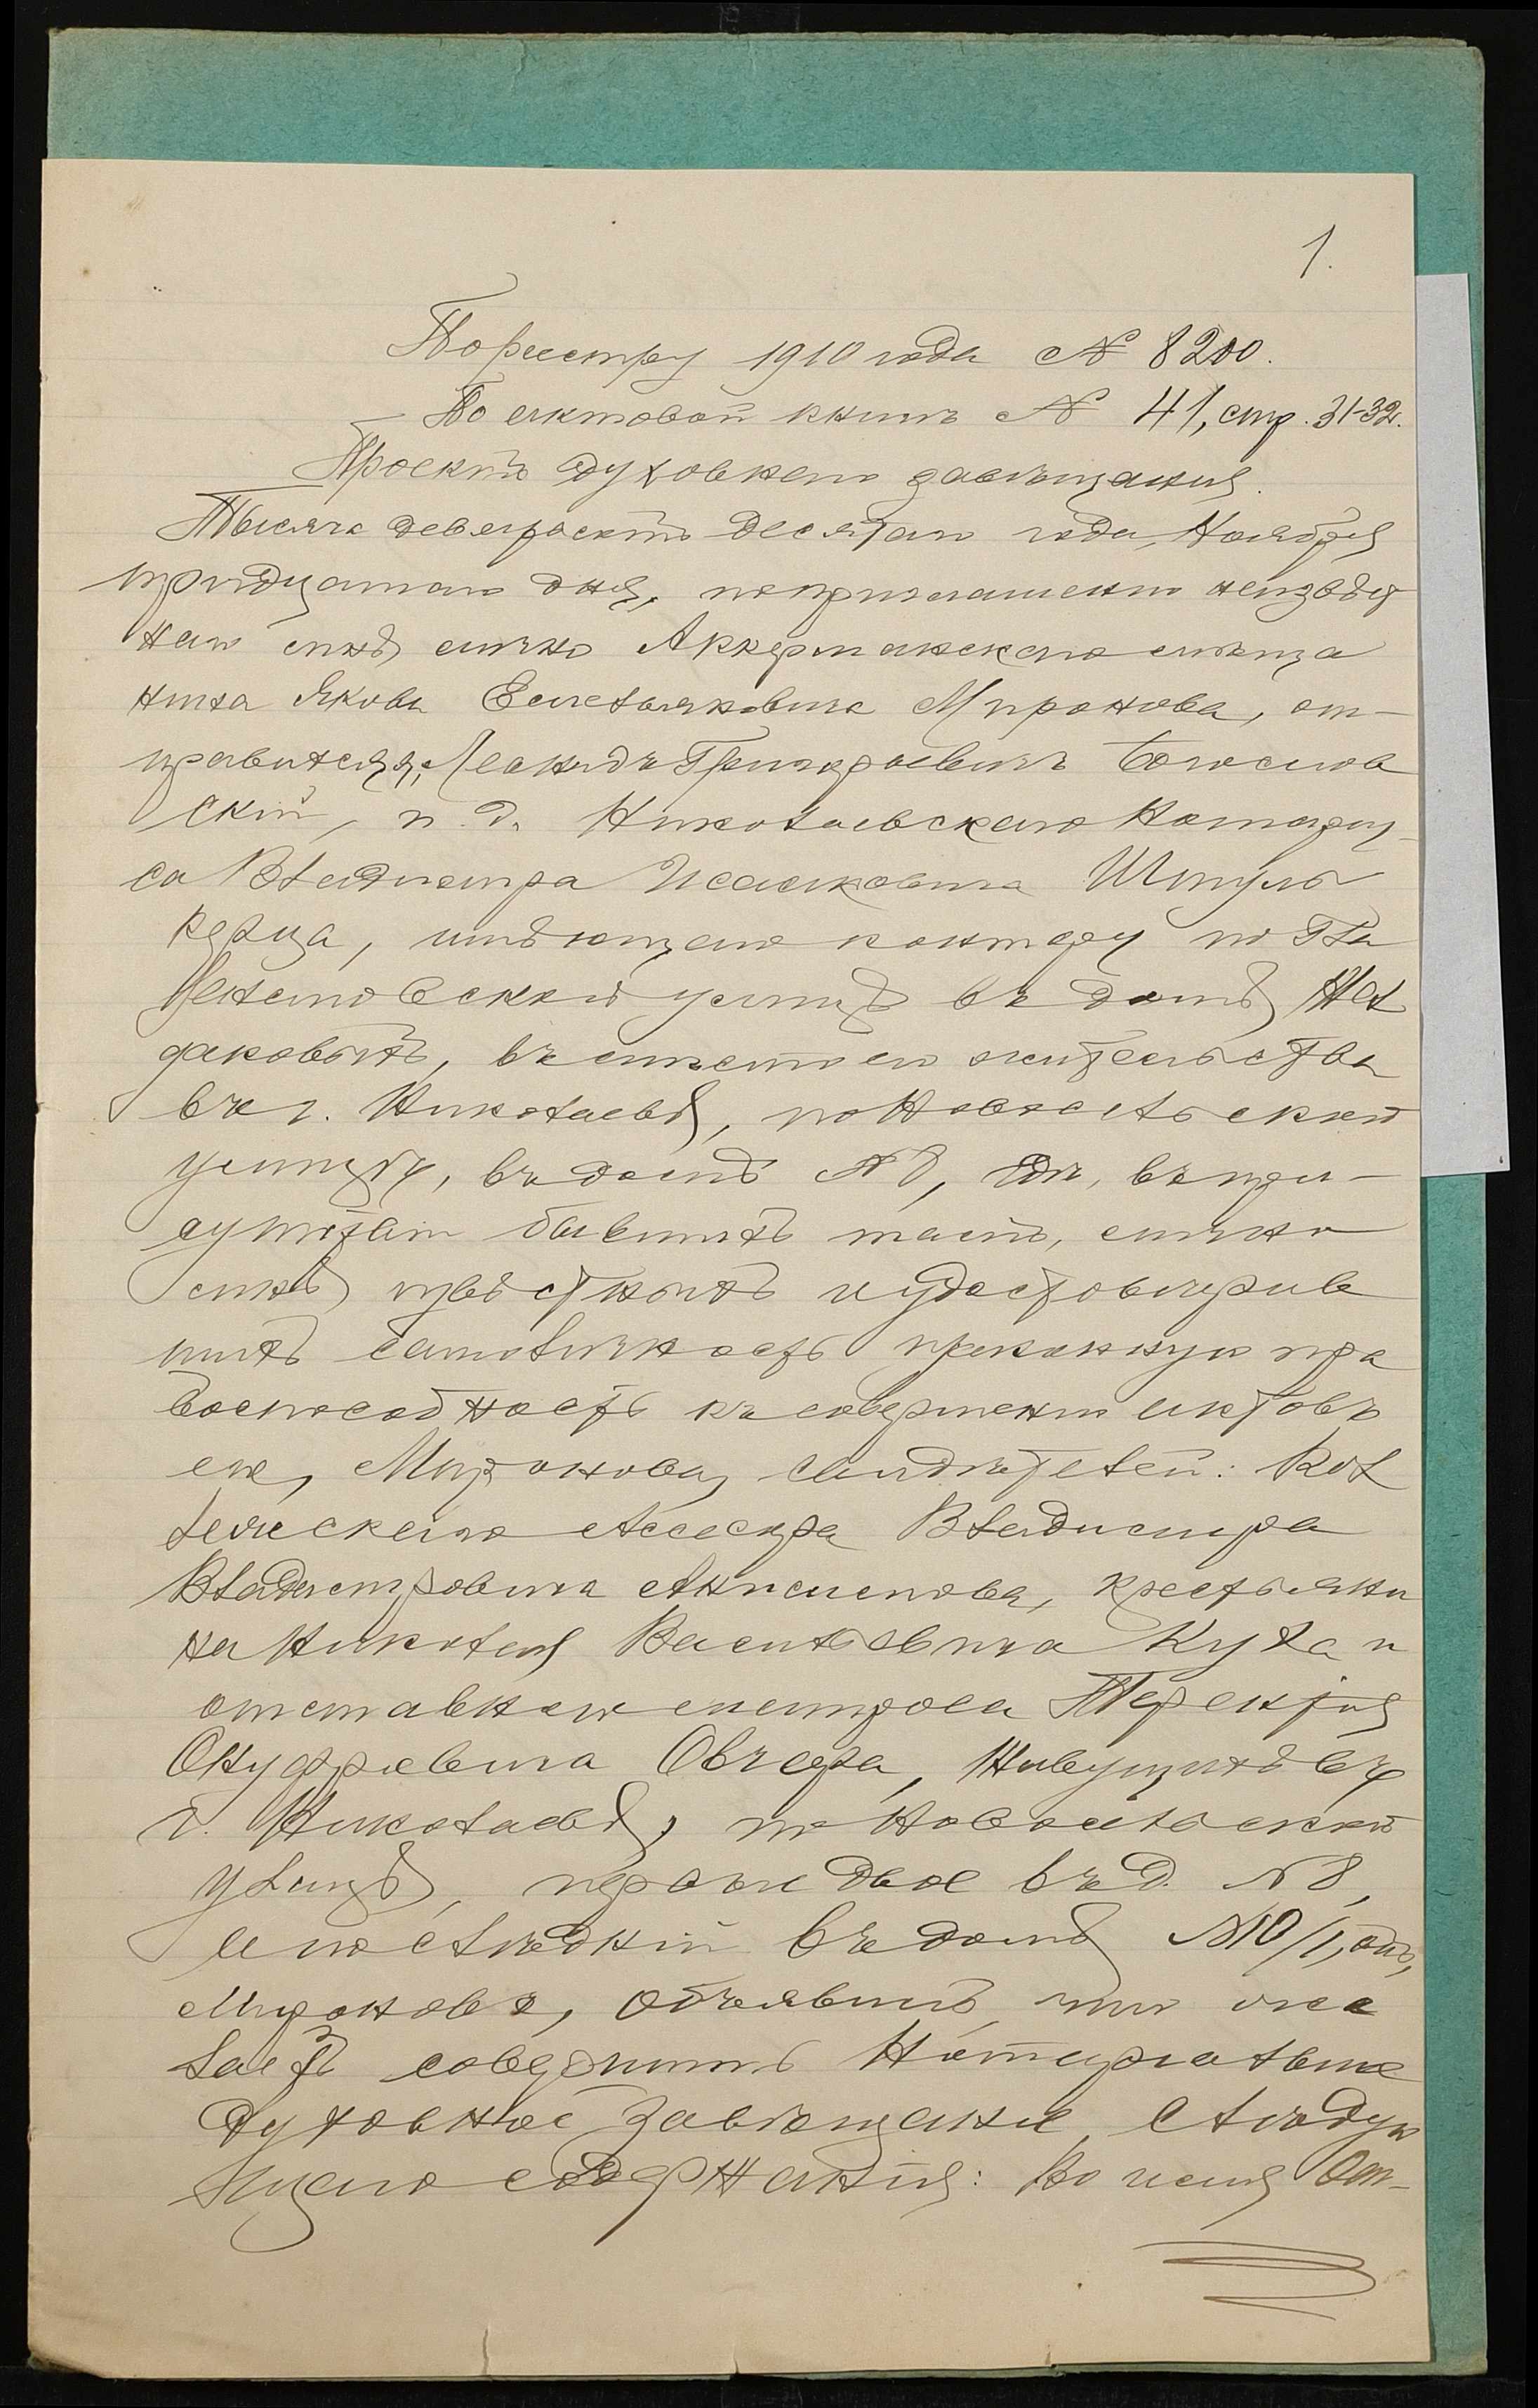 1.
По реестру 1910 года № 8200.
По актовой книгѣ № 41, стр. 31-32.
Проектъ духовнаго завѣщанія.
Тысяча девятьсотъ десятаго года, Ноября
тридцатаго дня, по приглашенію неизвѣст
наго мнѣ лично Аккерманскаго мѣща
нина Якова Емельяновича Миронова, от-
правился я, Леонидъ Григорьевичъ Богослов
скій, и. д. Николаевскаго Нотаріу-
са Владиміра Исааковича
имѣющаго контору по Гла
въ домѣ
въ мѣсто его жительства
въ г. Николаевѣ, по Новосельской
улицѣ, въ домѣ № 8, гдѣ, въ при-
сутствіи бывшихъ тамъ, лично
мнѣ извѣстныхъ и удостовѣрив
шихъ самоличность и законную пра
воспособность къ совершенію актовъ
его, Миронова, свидѣтелей: Кол
лежскаго Ассесора Владиміра
Владиміровича Анисимова, крестьяни
на Николая Васильевича Куха и
отставного матроса Терентія
Онуфріевича Овчара, живущихъ въ
г. Николаевѣ, по Новосельской
улицѣ, первые двое въ д. № 8,
а послѣдній въ домѣ № 10/1, онъ,
Мироновъ, объявилъ, что жела
етъ совершить Нотаріальное
духовное завѣщаніе слѣдую
щаго содержанія: Во имя От-